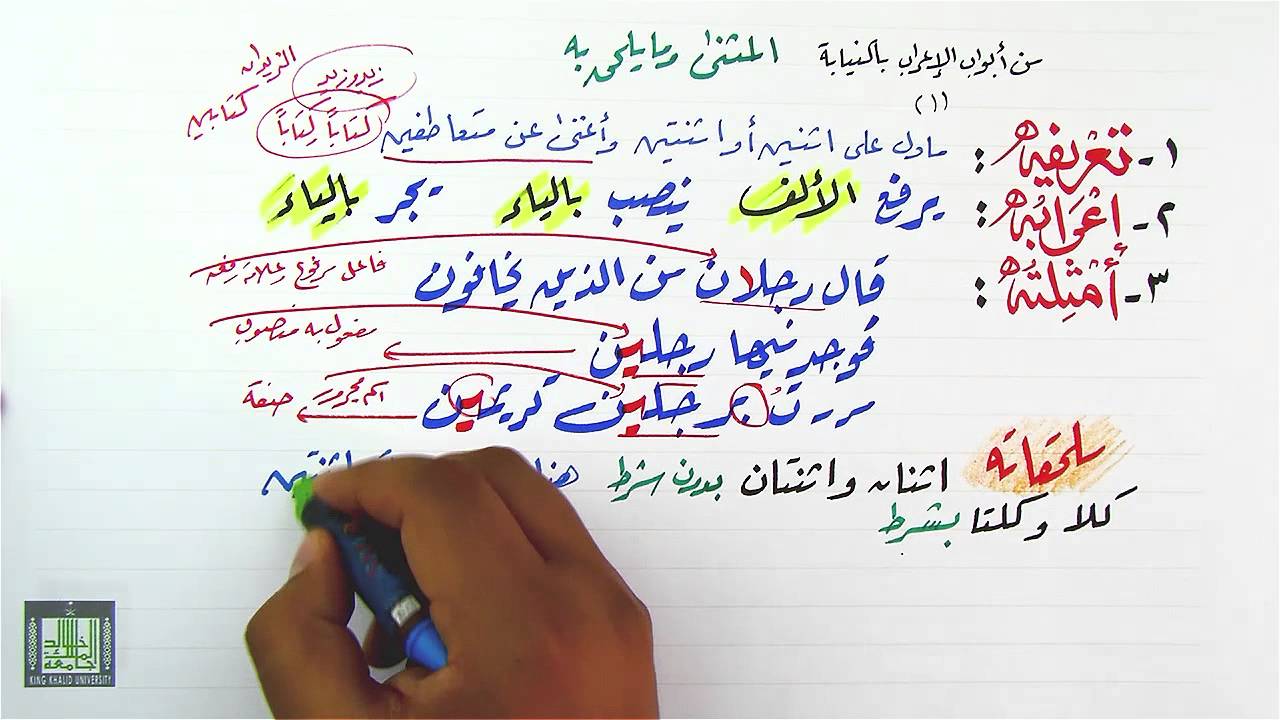 من أبواب الإعراب بالنيابة المثنى وما يلحق به
(١)
زيد وزيد الزيدان
كتاباً كتاباً كتابين
١- تعريفه : مادل على اثنين أو اثنتين وأغنى عن متعاطفين
٢- إعرابه : يرفع الألف ينصب بالياء يجر بالياء
٣- أمثلته : قال رجلان من الذين يخافون فاعل مرفوع وعلامة رفعه
فوجد فيها رجلين مفعول به منصوب
مررت برجلين كريمين اسم مجرور صفة
ملحقاته اثنان واثنتان بدون شرط اثنتين
كلا وكلتا بشرط
جامعة الملك خالد
KING KHALID UNIVERSITY